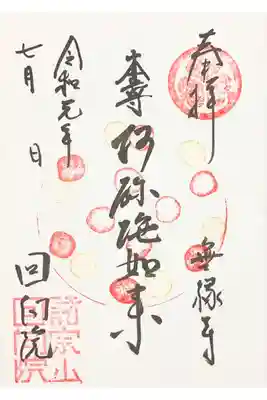 奉拝
無縁寺
本尊阿弥陀如来
令和元年
七月 日
回向院
諸宗山